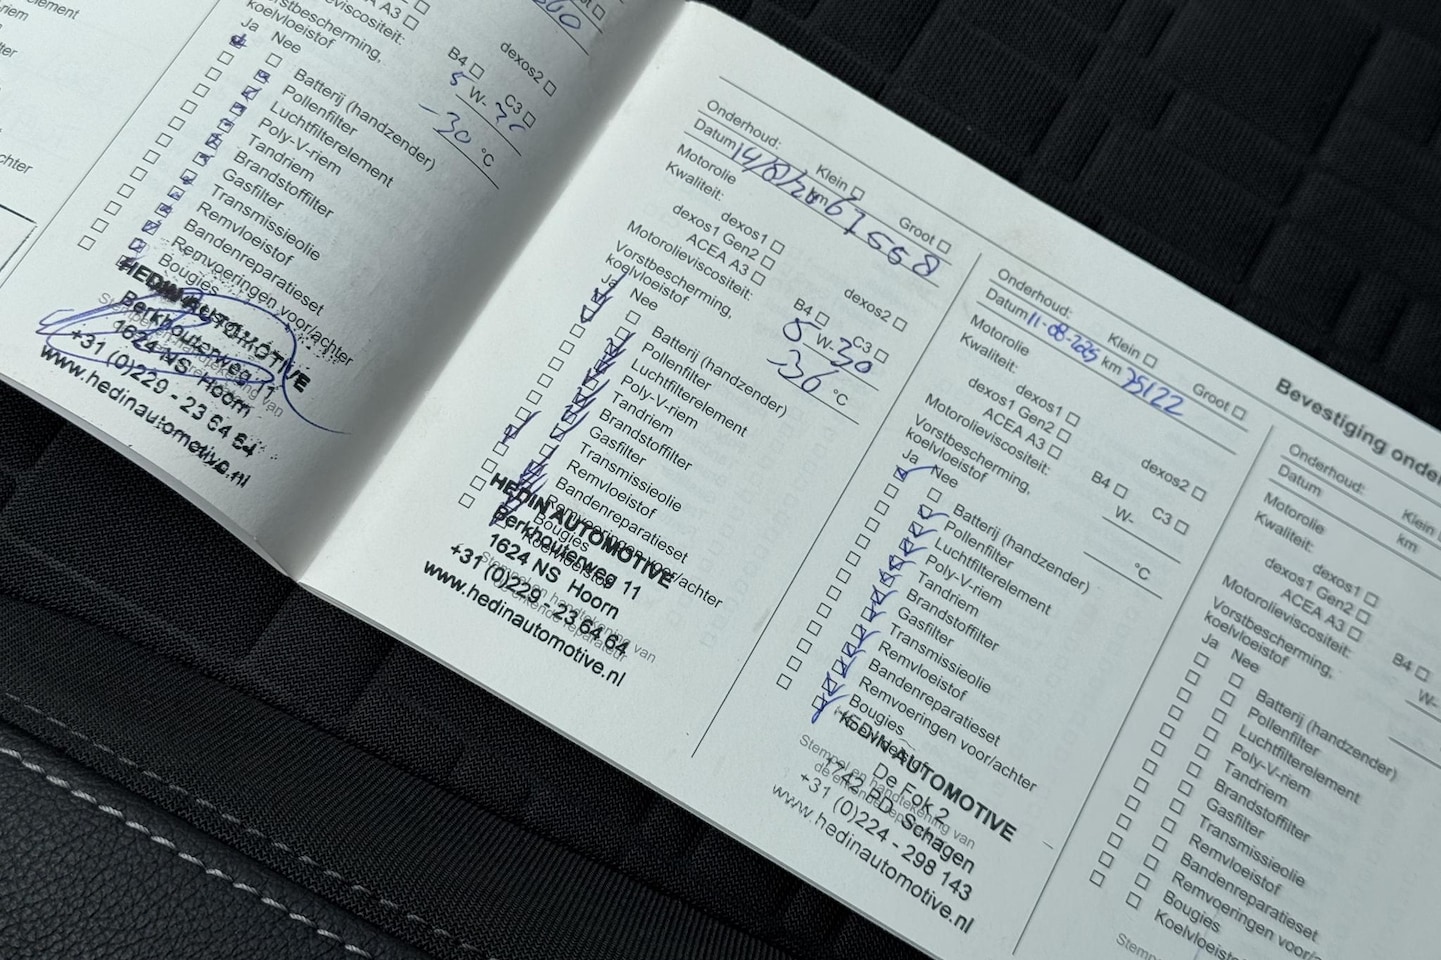 ACEA A3
lieviscositeit:
Vorstbescherming,
koelvloeistof
dexos2
B4 C3
5 W-30
-30 °C
Ja Nee
Batterij (handzender)
Pollenfilter
Luchtfilterelement
Poly-V-riem
Tandriem
Brandstoffilter
Gasfilter
Transmissieolie
Remvloeistof
Bandenreparatieset
Remvoeringen voor/achter
Bougies
HEDIN AUTOMOTIVE
Berkhouterweg 11
1624 NS Hoorn
+31 (0)229 - 23 64 64
www.hedinautomotive.nl
Onderhoud: Klein Groot
Datum 14/8/ km 67558
Motorolie
Kwaliteit:
dexos1 dexos2
dexos1 Gen2
ACEA A3 B4 C3
Motorolieviscositeit: 5 W-30
Vorstbescherming, °C
koelvloeistof
Ja Nee
Batterij (handzender)
Pollenfilter
Luchtfilterelement
Poly-V-riem
Tandriem
Brandstoffilter
Gasfilter
Transmissieolie
Remvloeistof
Bandenreparatieset
Remvoeringen voor/achter
Bougies
Koelvloeistof
Stempel en handtekening van
de erkende reparateur
HEDIN AUTOMOTIVE
Berkhouterweg 11
1624 NS Hoorn
+31 (0)229 - 23 64 64
www.hedinautomotive.nl
Onderhoud: Klein Groot
Datum 11-08-2025 km 75122
Motorolie
Kwaliteit:
dexos1 dexos2
dexos1 Gen2
ACEA A3 B4 C3
Motorolieviscositeit: W-
Vorstbescherming, °C
koelvloeistof
Ja Nee
Batterij (handzender)
Pollenfilter
Luchtfilterelement
Poly-V-riem
Tandriem
Brandstoffilter
Gasfilter
Transmissieolie
Remvloeistof
Bandenreparatieset
Remvoeringen voor/achter
Bougies
Koelvloeistof
Stempel en handtekening van
de erkende reparateur
HEDIN AUTOMOTIVE
De Fok 2
1742 PD Schagen
+31 (0)224 - 298 143
www.hedinautomotive.nl
Bevestiging onder
Onderhoud: Klein
Datum km
Motorolie
Kwaliteit:
dexos1
dexos1 Gen2
ACEA A3 B4
Motorolieviscositeit: W-
Vorstbescherming,
koelvloeistof
Ja Nee
Batterij (handzender)
Pollenfilter
Luchtfilterelement
Poly-V-riem
Tandriem
Brandstoffilter
Gasfilter
Transmissieolie
Remvloeistof
Bandenreparatieset
Remvoeringen voor/a
Bougies
Koelvloeistof
Stempel en